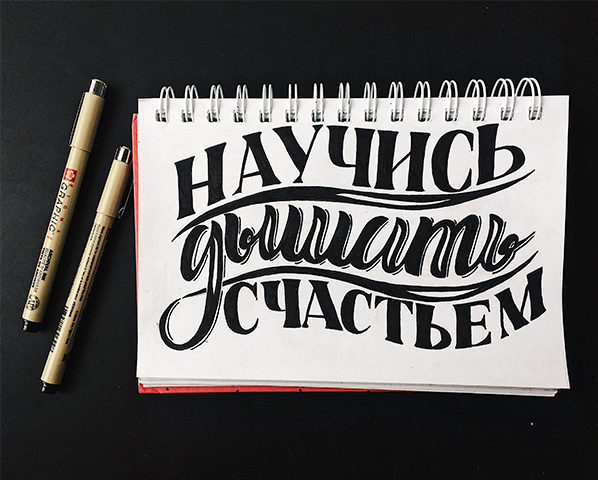 НАУЧИСЬ
дышать
СЧАСТЬЕМ
GRAPHIC